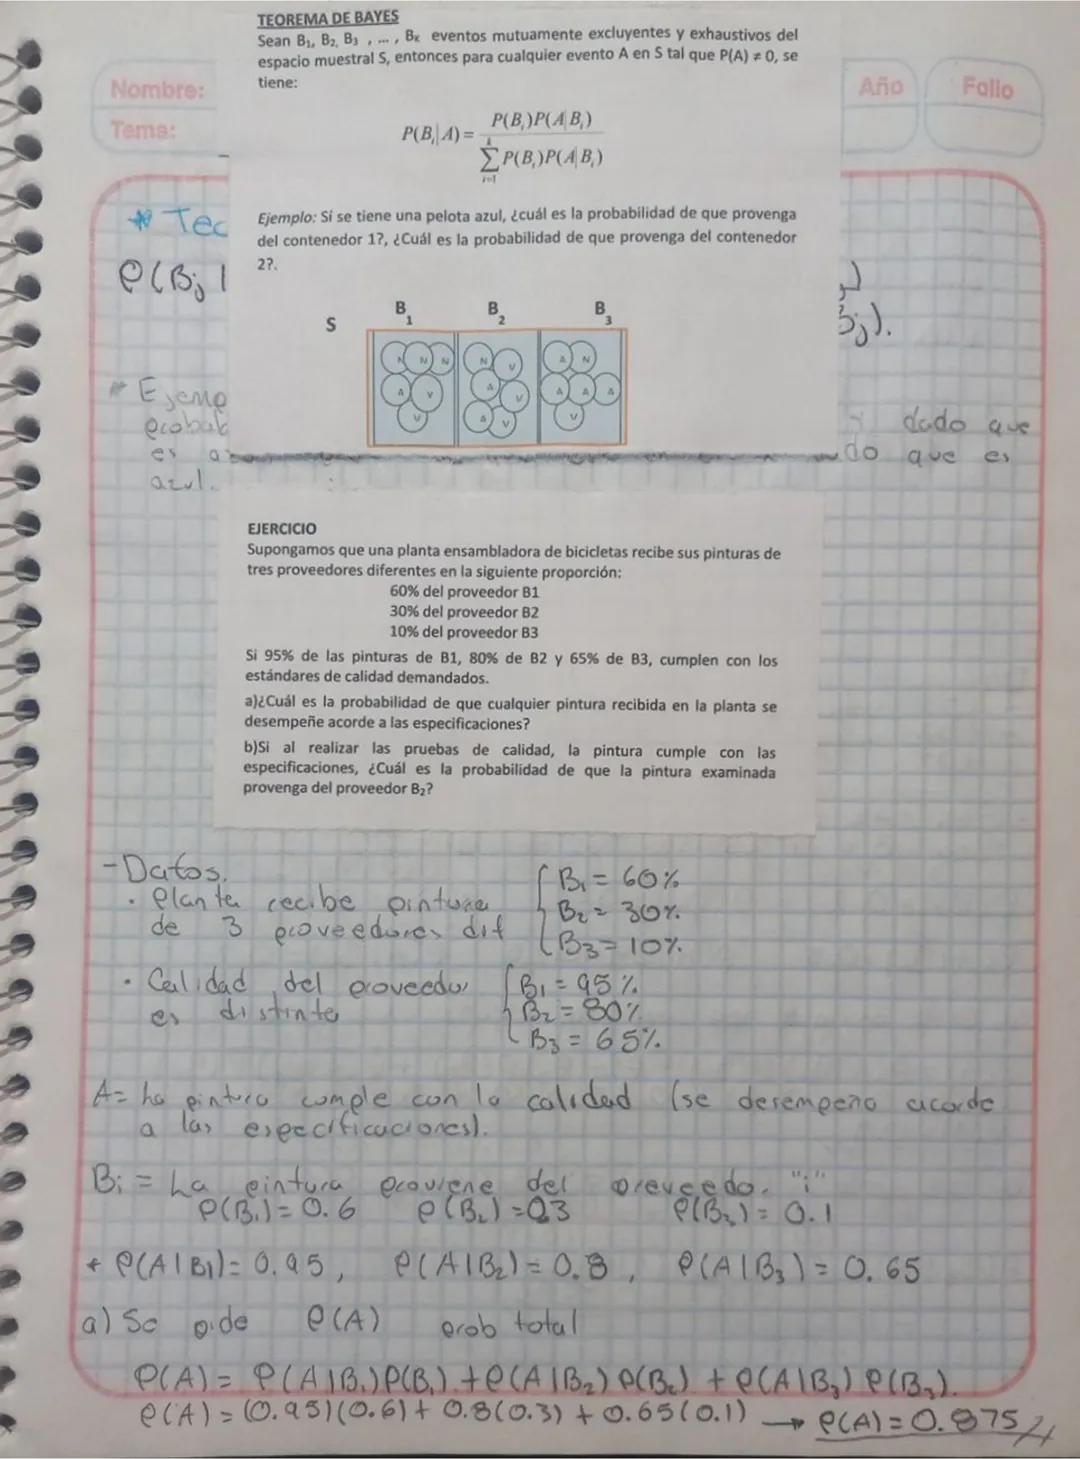 TEOREMA DE BAYES
Sean B₁, B₂, B₃ , ... , Bₖ eventos mutuamente excluyentes y exhaustivos del
espacio muestral S, entonces para cualquier evento A en S tal que P(A) ≠ 0, se
tiene:
Nombre:
Año
Folio
Tema:
P(Bᵢ|A) = P(Bᵢ)P(A|Bᵢ) / ∑ᵢ₌₁ᵏ P(Bᵢ)P(A|Bᵢ)
* Teo
Ejemplo: Si se tiene una pelota azul, ¿cuál es la probabilidad de que provenga
del contenedor 1?, ¿Cuál es la probabilidad de que provenga del contenedor
2?.
P(Bj |
Bj).
S B₁ B₂ B₃
N N N N V A N
A V A V A A A
V A V V
Ejemp
probab
dado que
es
do que es
azul.
EJERCICIO
Supongamos que una planta ensambladora de bicicletas recibe sus pinturas de
tres proveedores diferentes en la siguiente proporción:
60% del proveedor B1
30% del proveedor B2
10% del proveedor B3
Si 95% de las pinturas de B1, 80% de B2 y 65% de B3, cumplen con los
estándares de calidad demandados.
a)¿Cuál es la probabilidad de que cualquier pintura recibida en la planta se
desempeñe acorde a las especificaciones?
b)Si al realizar las pruebas de calidad, la pintura cumple con las
especificaciones, ¿Cuál es la probabilidad de que la pintura examinada
provenga del proveedor B₂?
- Datos.
• Planta recibe pintura
de 3 proveedores dif
B₁ = 60%
B₂ = 30%
B₃ = 10%
• Calidad del proveedor
es distinta
B₁ = 95%
B₂ = 80%
B₃ = 65%
A= La pintura cumple con la calidad (se desempeña acorde
a las especificaciones).
Bi = La pintura proviene del proveedor "i"
P(B₁) = 0.6 P(B₂) = 0.3 P(B₃) = 0.1
* P(A|B₁) = 0.95, P(A|B₂) = 0.8, P(A|B₃) = 0.65
a) Se pide P(A) prob total
P(A) = P(A|B₁)P(B₁) + P(A|B₂)P(B₂) + P(A|B₃)P(B₃).
P(A) = (0.95)(0.6) + 0.8(0.3) + 0.65(0.1) → P(A) = 0.875 //